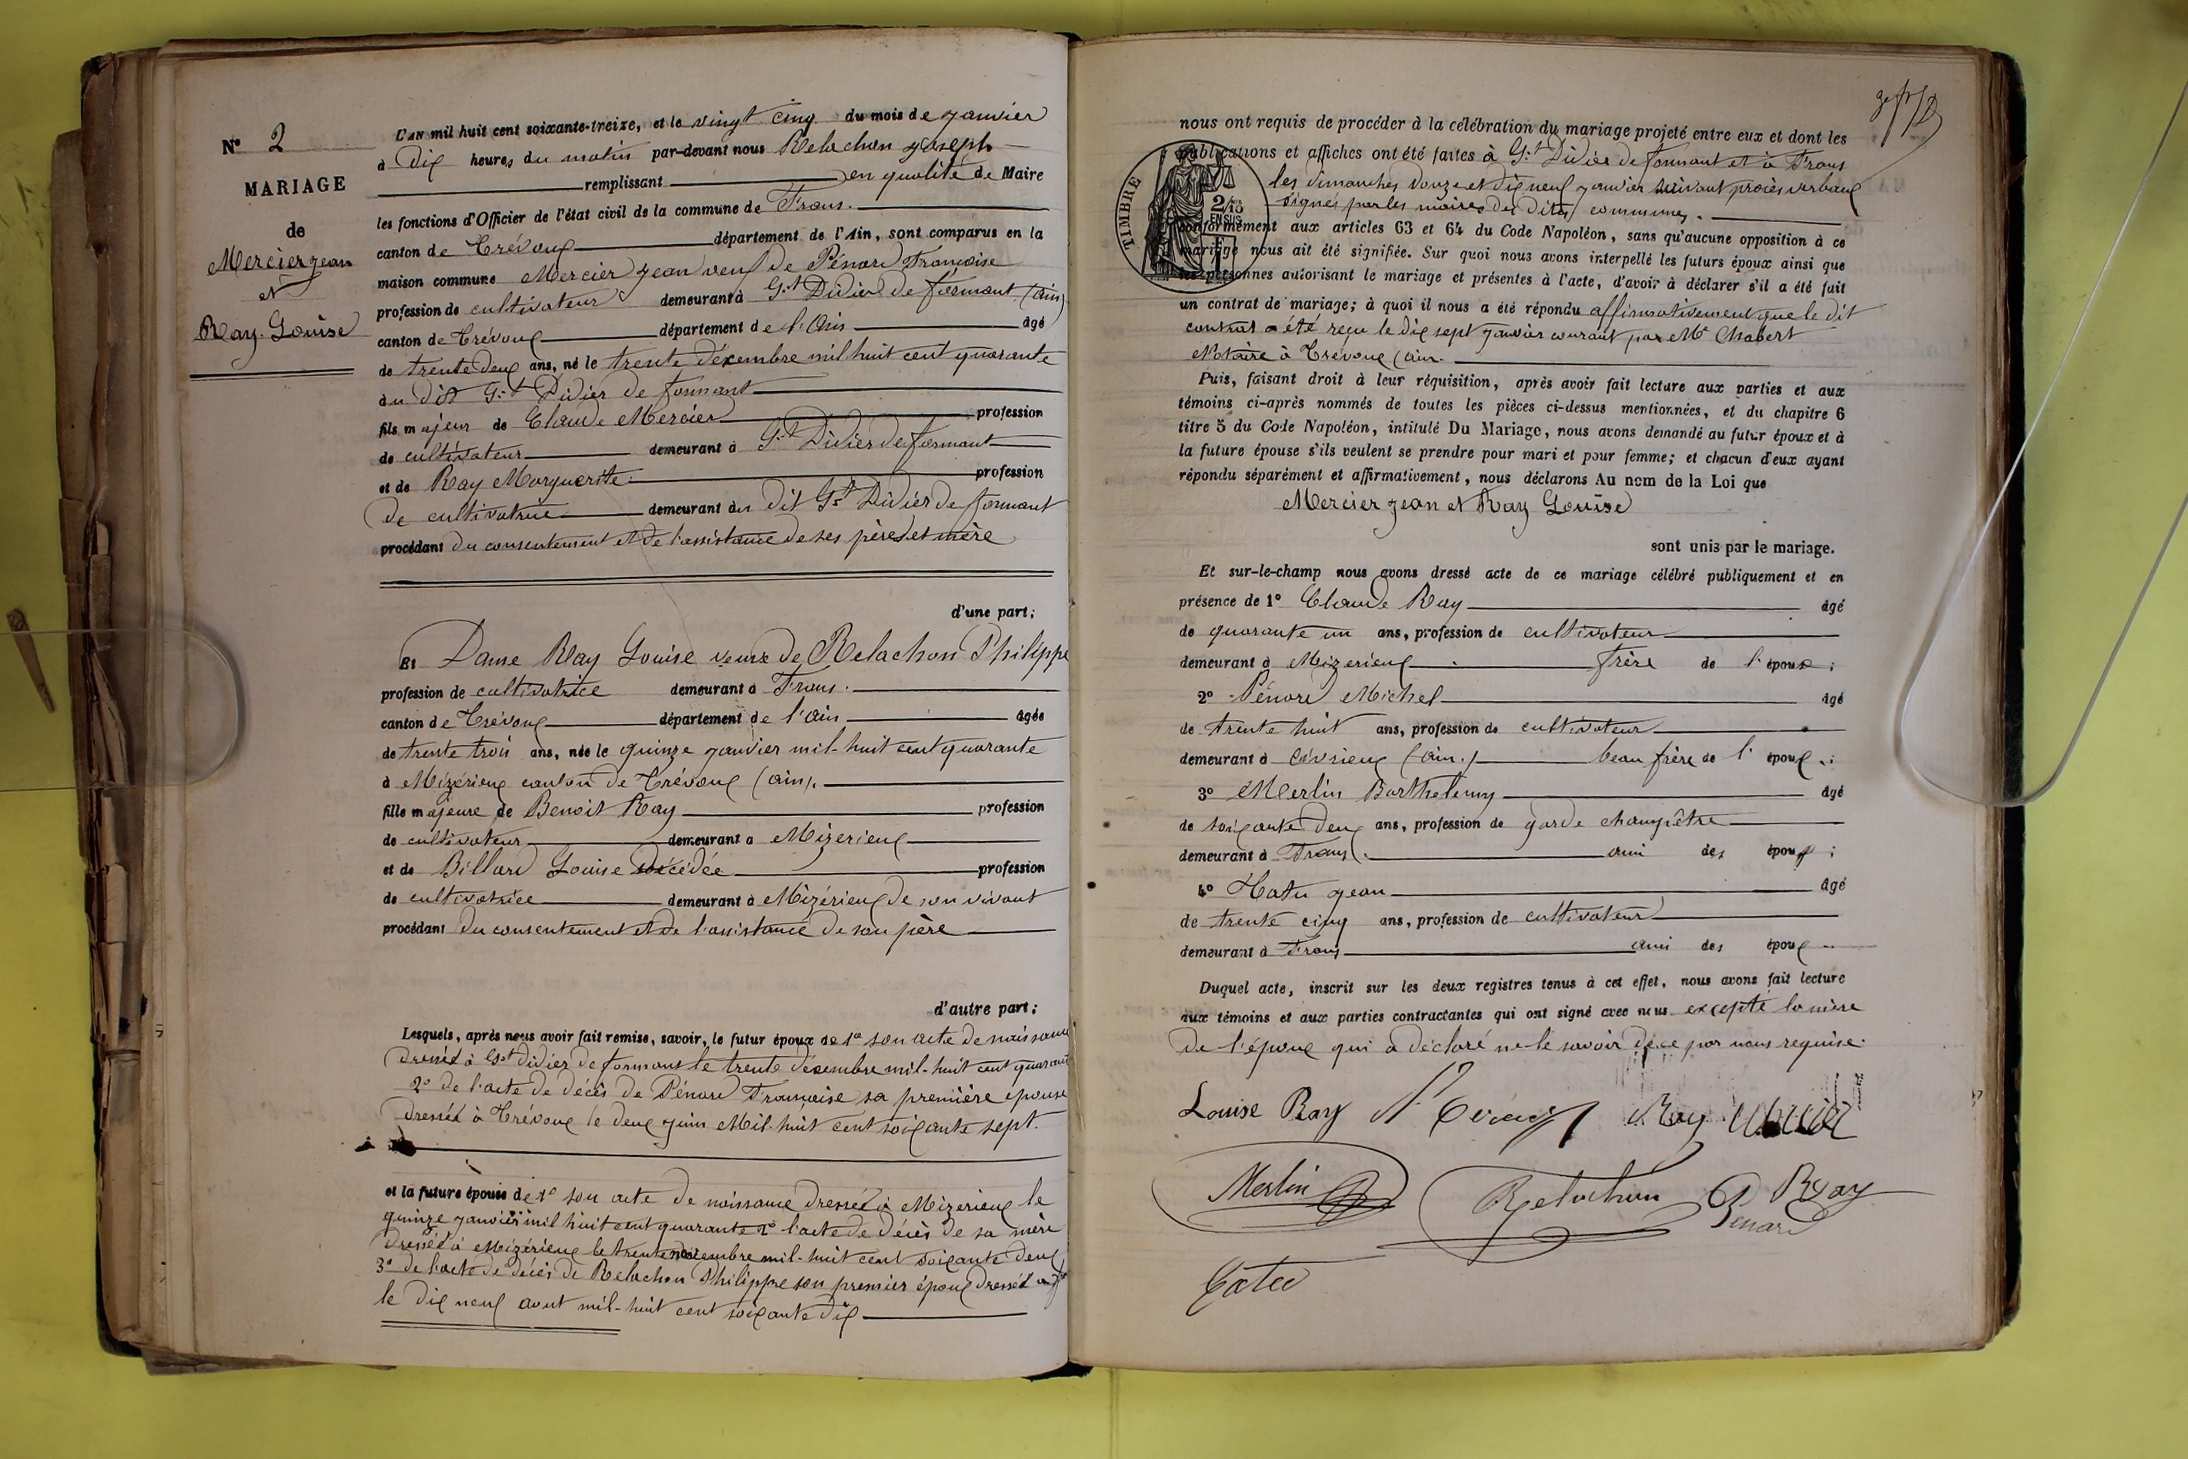 N° 2
MARIAGE
de
Mercier Jean
et
Ray Louise
L'AN mil huit cent soixante-treize, et le vingt cinq du mois de janvier
à dix heures du matin par-devant nous Relachon Joseph
remplissant en qualité de Maire
les fonctions d'Officier de l'état civil de la commune de Frans.
canton de Trévoux département de l'Ain, sont comparus en la
maison commune Mercier Jean veuf de Pénard Françoise
profession de cultivateur demeurant à St Didier de formant (Ain)
canton de Trévoux département de l'Ain âgé
de trente deux ans, né le trente décembre mil huit cent quarante
au dit St Didier de formant
fils majeur de Claude Mercier profession
de cultivateur demeurant à St Didier de formant
et de Ray Marguerite profession
de cultivatrice demeurant au dit St Didier de formant
procédant du consentement et de l'assistance de ses père et mère
d'une part;
Et Dame Ray Louise veuve de Relachon Philippe
profession de cultivatrice demeurant à Frans.
canton de Trévoux département de l'Ain âgée
de trente trois ans, née le quinze janvier mil-huit cent quarante
à Mizérieux canton de Trévoux (Ain).
fille majeure de Benoit Ray profession
de cultivateur demeurant à Mizerieux
et de Billard Louise décédée profession
de cultivatrice demeurant à Mizérieux de son vivant
procédant du consentement et de l'assistance de son père
d'autre part;
Lesquels, après nous avoir fait remise, savoir, le futur époux de 1° son acte de naissance
dressé à St Didier de formans le trente décembre mil-huit cent quarante
2° de l'acte de décès de Pénard Françoise sa première épouse
dressée à Trévoux le deux juin Mil-huit cent soixante sept.
et la future épouse de 1° son acte de naissance dressée à Mizerieux le
quinze janvier mil huit cent quarante 2° l'acte de décès de sa mère
dressée à Mizérieux le trente décembre mil-huit cent soixante deux
3° de l'acte de décès de Relachon Philippe son premier époux dressée
le dix neuf aout mil-huit cent soixante dix
nous ont requis de procéder à la célébration du mariage projeté entre eux et dont les
publications et affiches ont été faites à St Didier de formant et à Frans
les dimanches douze et dix neuf janvier suivant procès verbaux
signés par les maires des dites communes.
TIMBRE
2/10
EN SUS
conformément aux articles 63 et 64 du Code Napoléon, sans qu'aucune opposition à ce
mariage nous ait été signifiée. Sur quoi nous avons interpellé les futurs époux ainsi que
les personnes autorisant le mariage et présentes à l'acte, d'avoir à déclarer s'il a été fait
un contrat de mariage; à quoi il nous a été répondu affirmativement que le dit
contrat a été reçu le dix sept janvier courant par Me Chabert
Notaire à Trévoux (Ain.
Puis, faisant droit à leur réquisition, après avoir fait lecture aux parties et aux
témoins ci-après nommés de toutes les pièces ci-dessus mentionnées, et du chapitre 6
titre 5 du Code Napoléon, intitulé Du Mariage, nous avons demandé au futur époux et à
la future épouse s'ils veulent se prendre pour mari et pour femme; et chacun d'eux ayant
répondu séparément et affirmativement, nous déclarons Au nom de la Loi que
Mercier Jean et Ray Louise
sont unis par le mariage.
Et sur-le-champ nous avons dressé acte de ce mariage célébré publiquement et en
présence de 1° Claude Ray âgé
de quarante un ans, profession de cultivateur
demeurant à Mizerieux frère de l'épouse;
2° Pénard Michel âgé
de trente huit ans, profession de cultivateur
demeurant à Civrieux (Ain.) beau frère de l'époux;
3° Merlin Barthelemy âgé
de soixante deux ans, profession de garde champêtre
demeurant à Frans. ami des époux;
4° Catu Jean âgé
de trente cinq ans, profession de cultivateur
demeurant à Frans ami des époux
Duquel acte, inscrit sur les deux registres tenus à cet effet, nous avons fait lecture
aux témoins et aux parties contractantes qui ont signé avec nous excepté la mère
de l'époux qui a déclaré ne le savoir de ce par nous requise.
Louise Ray Mercier Ray Mercier
Merlin Relachon Ray
Penard
Catu